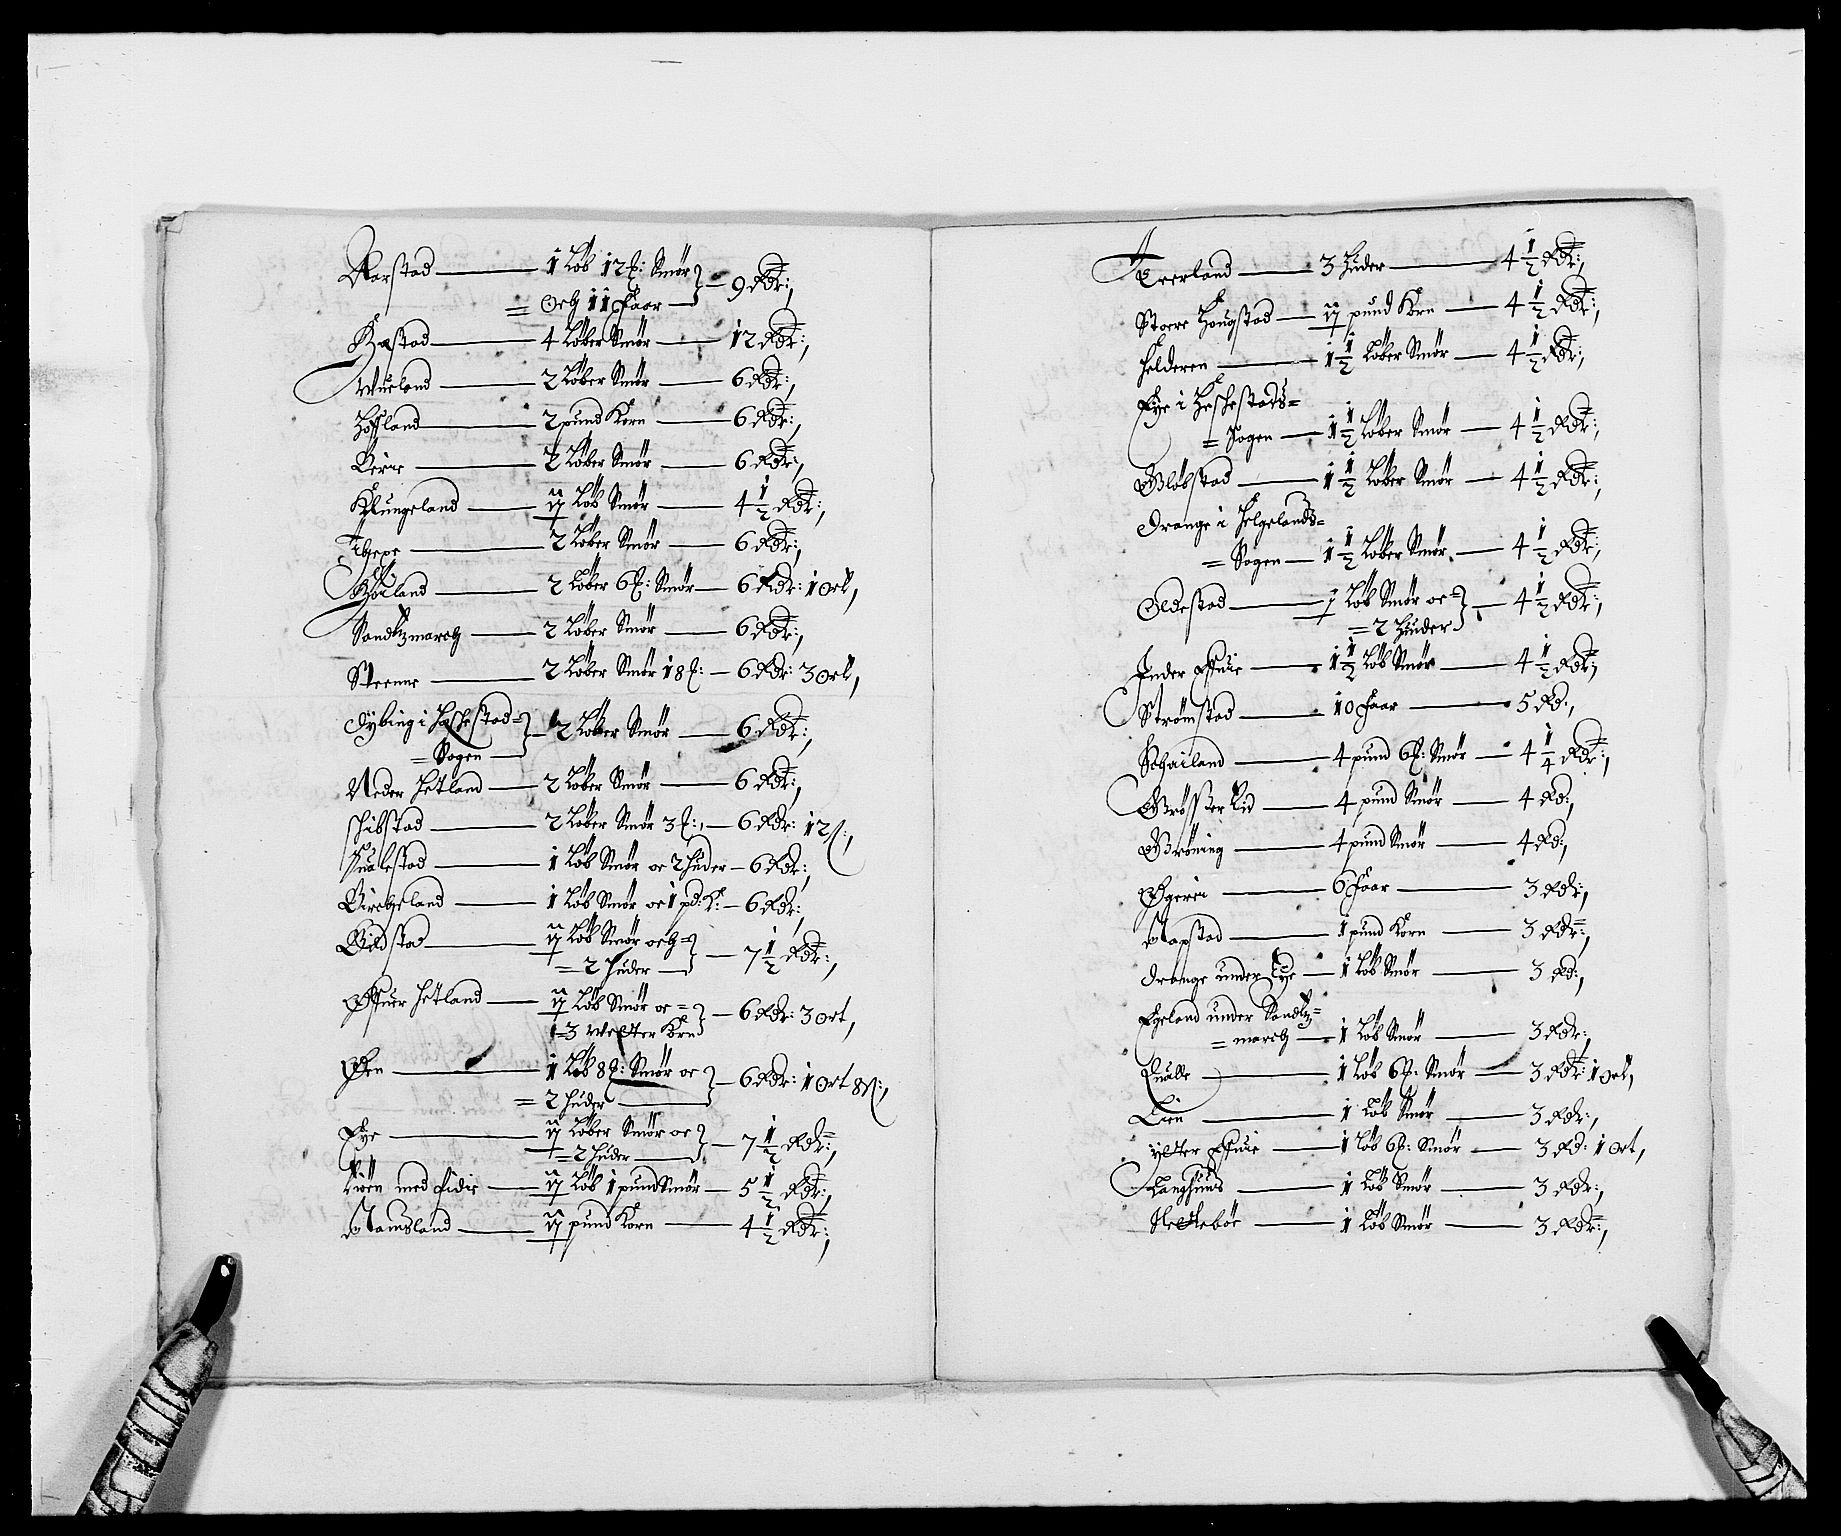 Aarstad — 1 Løb 12 ℔: Smør
= Och 11 Faar — 9 Rdr:,
Bastad — 4 Løber Smør — 12 Rdr:,
Mueland — 2 Løber Smør — 6 Rdr:,
Hofland — 2 pund Korn — 6 Rdr:,
Birie — 2 Løber Smør — 6 Rdr:,
Klungeland — 1½ Løb Smør — 4½ Rdr:,
2 Løber Smør — 6 Rdr:,
Høiland — 2 Løber 6 ℔: Smør — 6 Rdr: 1 Ort,
Sandtzmarch — 2 Løber Smør — 6 Rdr:,
Steenne — 2 Løber Smør 18 ℔: — 6 Rdr: 3 Ort,
Dybing i Heschestad=
= Sogen — 2 Løber Smør — 6 Rdr:,
Neder Hetland — 2 Løber Smør — 6 Rdr:,
Schibstad — 2 Løber Smør 3 ℔:, — 6 Rdr: 12 ß:,
Sualestad — 1 Løb Smør oc 2 Huder — 6 Rdr:,
Bircheland — 1 Løb Smør oc 1 pd: K: — 6 Rdr:,
Bildstad — 1½ Løb Smør och=
= 2 Huder — 7½ Rdr:,
Øfuer Hetland — 1½ Løb Smør oc =
= 3 Wetter Korn — 6 Rdr: 3 Ort,
Øen — 1 Løb 8 ℔: Smør oc
= 2 Huder — 6 Rdr: 1 Ort 8 ß:,
Eye — 1½ Løber Smør oc
= 2 Huder — 7½ Rdr:,
med Lidie — 1½ Løb 1 pund Smør — 5½ Rdr:,
Mamsland — 1½ pund Korn — 4½ Rdr:,
Terland — 3 Huder — 4½ Rdr:,
Stoere Hougstad — 1½ pund Korn — 4½ Rdr:,
Helderen — 1½ Løber Smør — 4½ Rdr:,
Eye i Heschestads=
= Sogen — 1½ Løber Smør — 4½ Rdr:,
Bløbstad — 1½ Løber Smør — 4½ Rdr:,
Drange i Helgelands=
= Sogen — 1½ Løber Smør — 4½ Rdr:,
Oldestad — 1 Løb Smør oc =
= 2 Huder — 4½ Rdr:,
Inder Efuie — 1½ Løb Smør — 4½ Rdr:,
Strømstad — 10 Faar — 5 Rd:,
Schailand — 4 pund 6 ℔: Smør — 4¼ Rdr:,
Lid — 4 pund Smør — 4 Rd:,
Grøning — 4 pund Smør — 4 Rd:,
Øgerei — 6 Faar — 3 Rdr:,
Napstad — 1 pund Korn — 3 Rdr:,
Drange under Eye — 1 Løb Smør — 3 Rd:,
Egeland under Sandtz=
= march — 1 Løb Smør — 3 Rdr:,
Qualle — 1 Løb 6 ℔: Smør — 3 Rdr: 1 Ort,
Lien — 1 Løb Smør — 3 Rdr:,
Ytter Efuie — 1 Løb 6 ℔: Smør — 3 Rd: 1 Ort,
Langhuus — 1 Løb Smør — 3 Rdr:,
Nettebøe — 1 Løb Smør — 3 Rdr:,